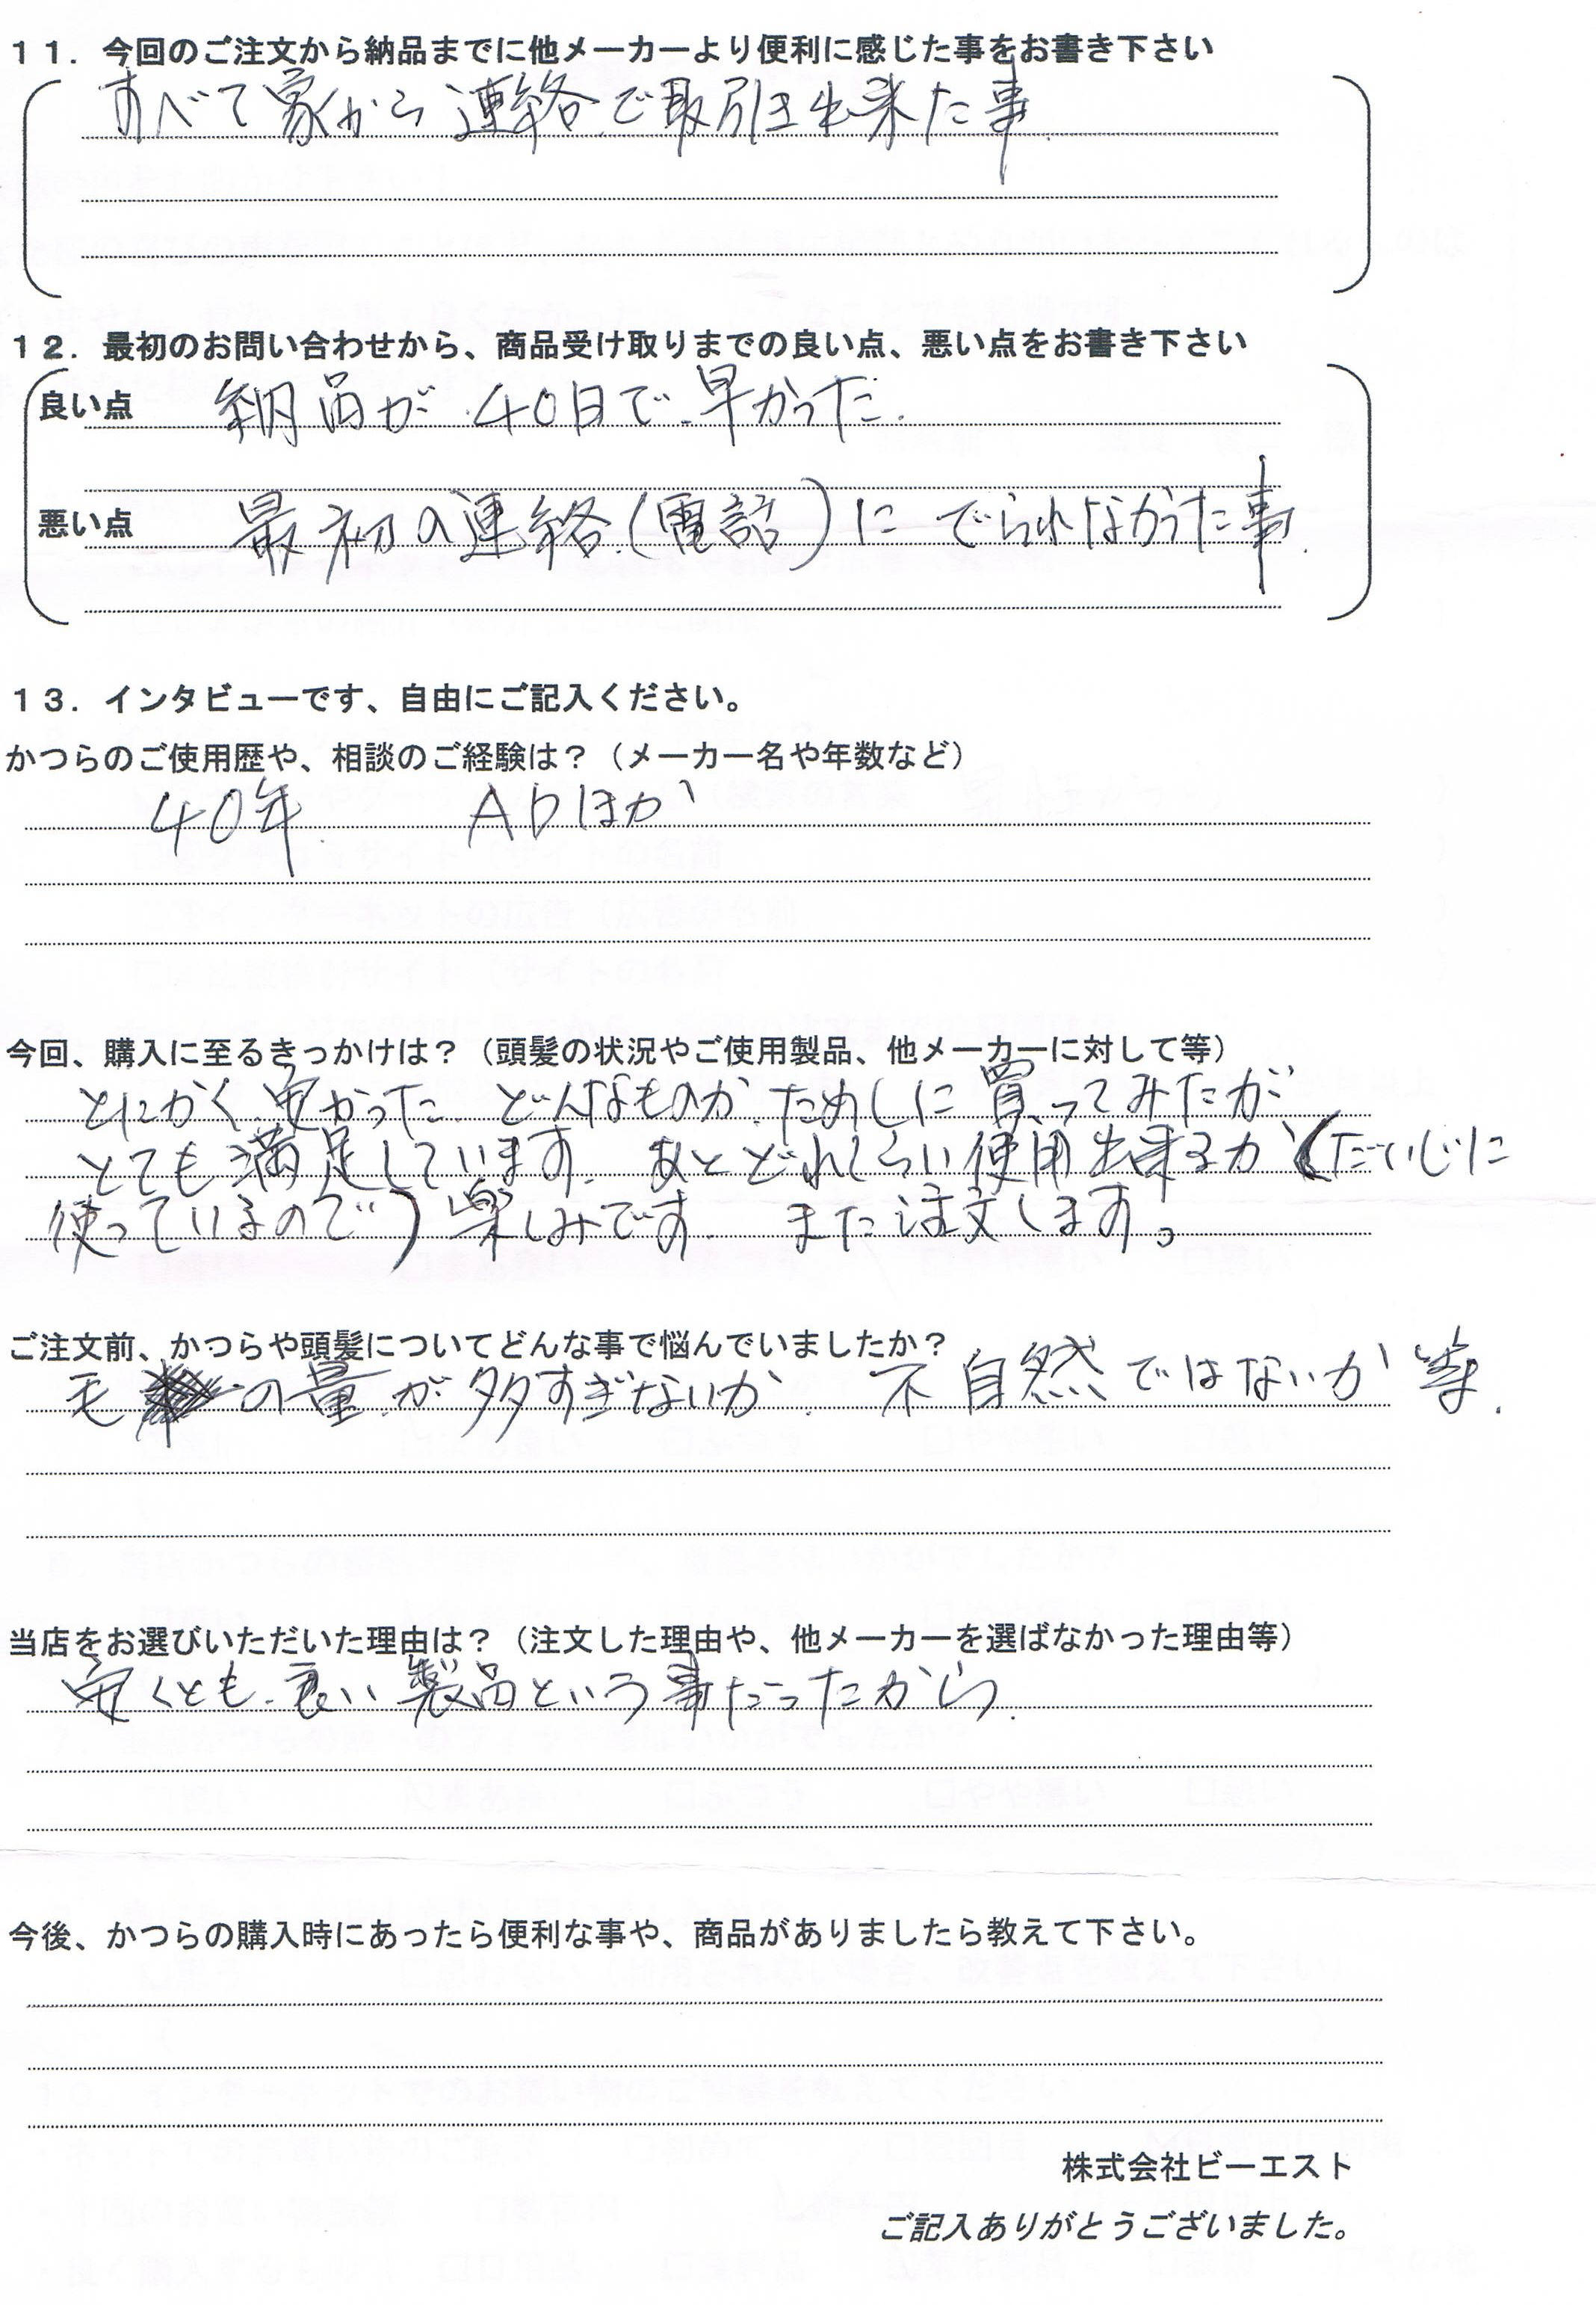 11．今回のご注文から納品までに他メーカーより便利に感じた事をお書き下さい
すべて家から連絡で取引き出来た事.
12．最初のお問い合わせから、商品受け取りまでの良い点、悪い点をお書き下さい
良い点 納品が40日で早かった.
悪い点 最初の連絡(電話)にでられなかった事.
13．インタビューです、自由にご記入ください。
かつらのご使用歴や、相談のご経験は？（メーカー名や年数など）
40年. ADほか
今回、購入に至るきっかけは？（頭髪の状況やご使用製品、他メーカーに対して等）
とにかく安かった. どんなものか ためしに買ってみたが
とても満足しています. あとどれくらい使用出来るか(だいじに
使っているので)楽しみです. また注文します。
ご注文前、かつらや頭髪についてどんな事で悩んでいましたか？
毛の量が多すぎないか. 不自然ではないか等.
当店をお選びいただいた理由は？（注文した理由や、他メーカーを選ばなかった理由等）
安くとも良い製品という事だったから.
今後、かつらの購入時にあったら便利な事や、商品がありましたら教えて下さい。
株式会社ビーエスト
ご記入ありがとうございました。